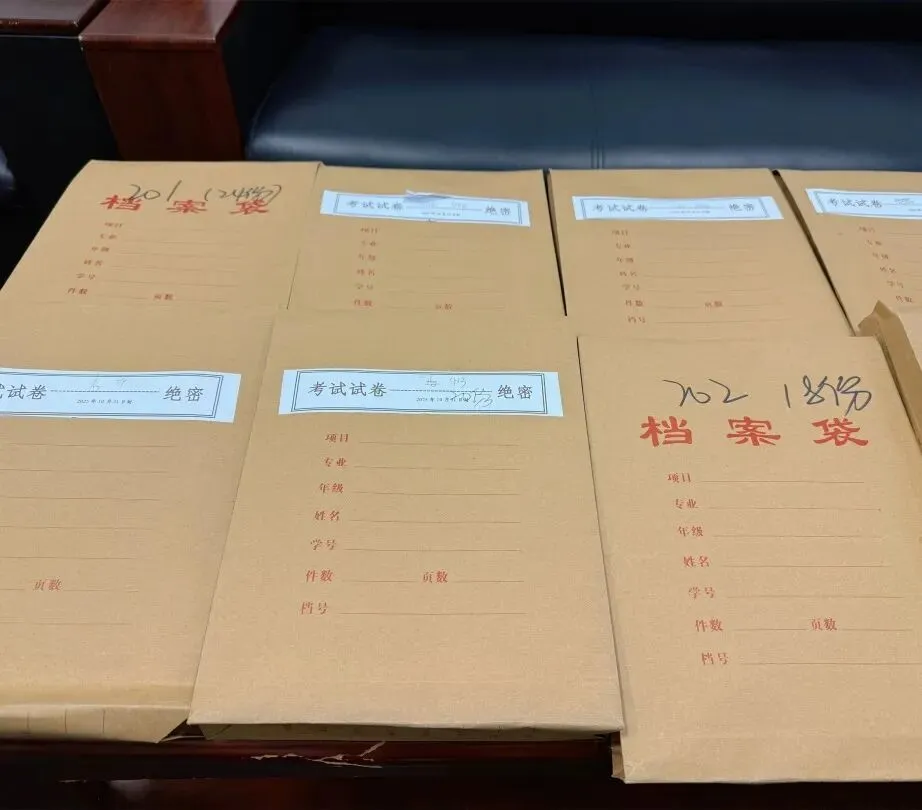 201 (24份)
档案袋
项目
专业
年级
姓名
学号
件数 页数
考试试卷 绝密
项目
专业
年级
姓名
学号
件数 页数
考试试卷 绝密
项目
专业
年级
姓名
学号
件数 页数
档号
考试试卷 绝密
项目
专业
年级
姓名
学号
件数
试卷 绝密
2023年10月21日制
页数
考试试卷 绝密
20份
项目
专业
年级
姓名
学号
件数 页数
档号
202 18份
档案袋
项目
专业
年级
姓名
学号
件数 页数
档号